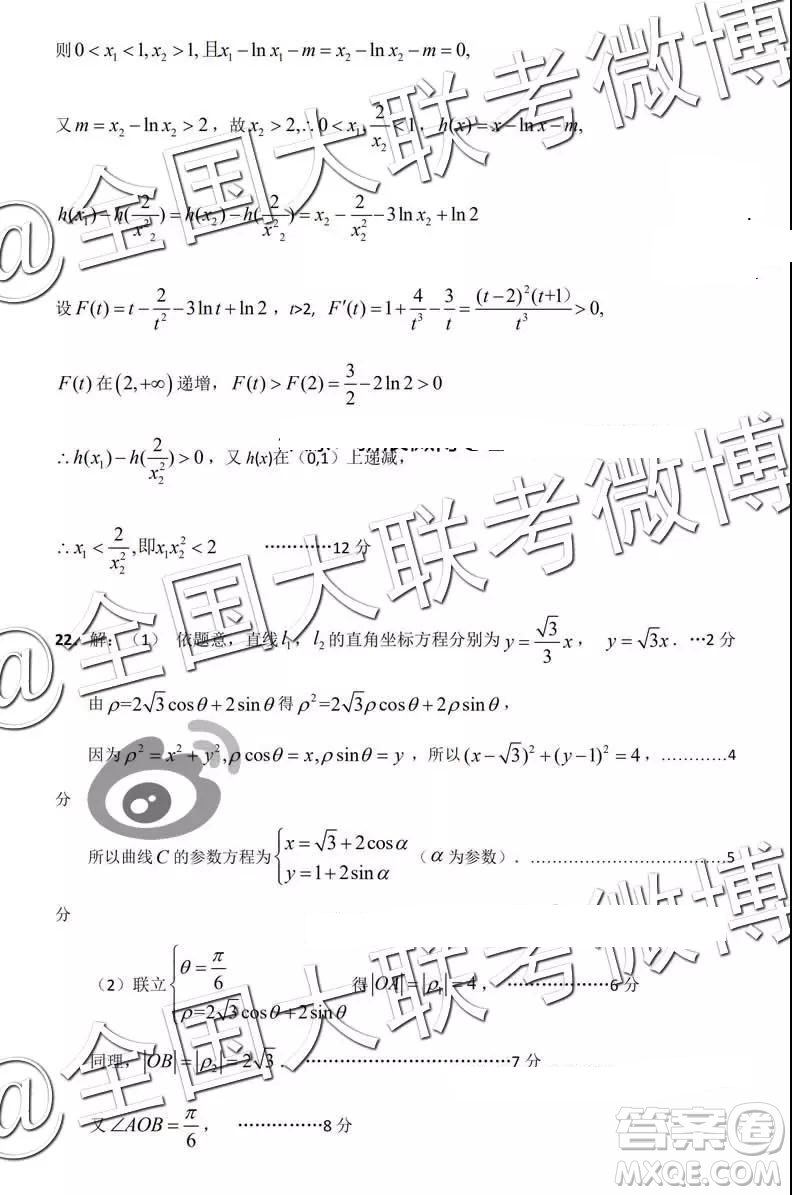 则0<x₁<1, x₂>1, 且x₁−ln x₁−m=x₂−ln x₂−m=0,
又m=x₂−ln x₂>2，故x₂>2,∴0<x₁,2/x₂<1，h(x)=x−ln x−m,
h(x₁)−h(2/x²₂)=h(x₂)−h(2/x²₂)=x₂−2/x₂²−3ln x₂+ln2
设F(t)=t−2/t²−3ln t+ln2，t>2, F′(t)=1+4/t³−3/t=(t−2)²(t+1)/t³>0,
F(t)在(2,+∞)递增，F(t)>F(2)=3/2−2ln2>0
∴h(x₁)−h(2/x₂²)>0，又 h(x)在（0,1）上递减，
∴x₁<2/x₂²,即x₁x₂²<2 …………12 分
22. 解：（1） 依题意，直线l₁，l₂的直角坐标方程分别为y=√3/3 x， y=√3x．…2 分
由ρ=2√3cosθ+2sinθ得ρ²=2√3ρcosθ+2ρsinθ，
因为ρ²=x²+y²,ρcosθ=x,ρsinθ=y，所以(x−√3)²+(y−1)²=4，…………4
分
所以曲线C的参数方程为{x=√3+2cosα y=1+2sinα（α为参数）．……………………………5
分
（2）联立{θ=π/6 ρ=2√3cosθ+2sinθ 得|OA|=|ρ₁|=4， ………………6 分
同理，|OB|=|ρ₂|=2√3． ………………………………7 分
又∠AOB=π/6， ……………8 分
@全国大联考微博
@全国大联考微博
@全国大联考微博
答案卷
MXQE.COM